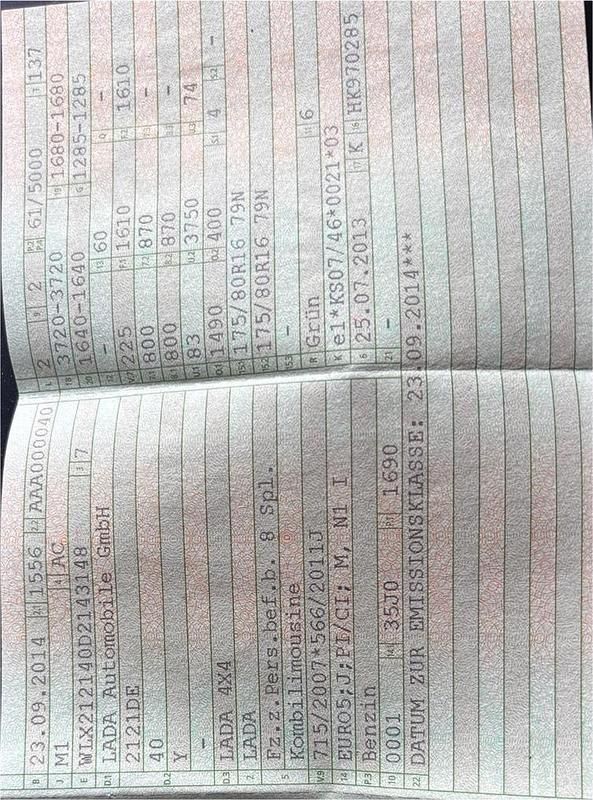 B 23.09.2014 2.1 1556 2.2 AAA000040
J M1 4 AC
E WLX212140D2143148 3 7
D.1 LADA Automobile GmbH
2121DE
40
D.2 Y
-
D.3 LADA 4X4
2 LADA
5 Fz.z.Pers.bef.b. 8 Spl.
Kombilimousine
V.9 715/2007*566/2011J
14 EURO5;J;PI/CI; M, N1 I
P.3 Benzin
10 0001 14.1 35J0 P.1 1690
22 DATUM ZUR EMISSIONSKLASSE: 23.09.2014***
L 2 9 2 P.2 P.4 61/5000 T 137
18 3720-3720 19 1680-1680
20 1640-1640 G 1285-1285
12 - 13 60 Q -
V.7 225 F.1 1610 F.2 1610
7.1 800 7.2 870 7.3 -
8.1 800 8.2 870 8.3 -
U.1 83 U.2 3750 U.3 74
O.1 1490 O.2 400 S.1 4 S.2 -
15.1 175/80R16 79N
15.2 175/80R16 79N
15.3 -
R Grün 11 6
K e1*KS07/46*0021*03
6 25.07.2013 17 K 16 HK970285
21 -